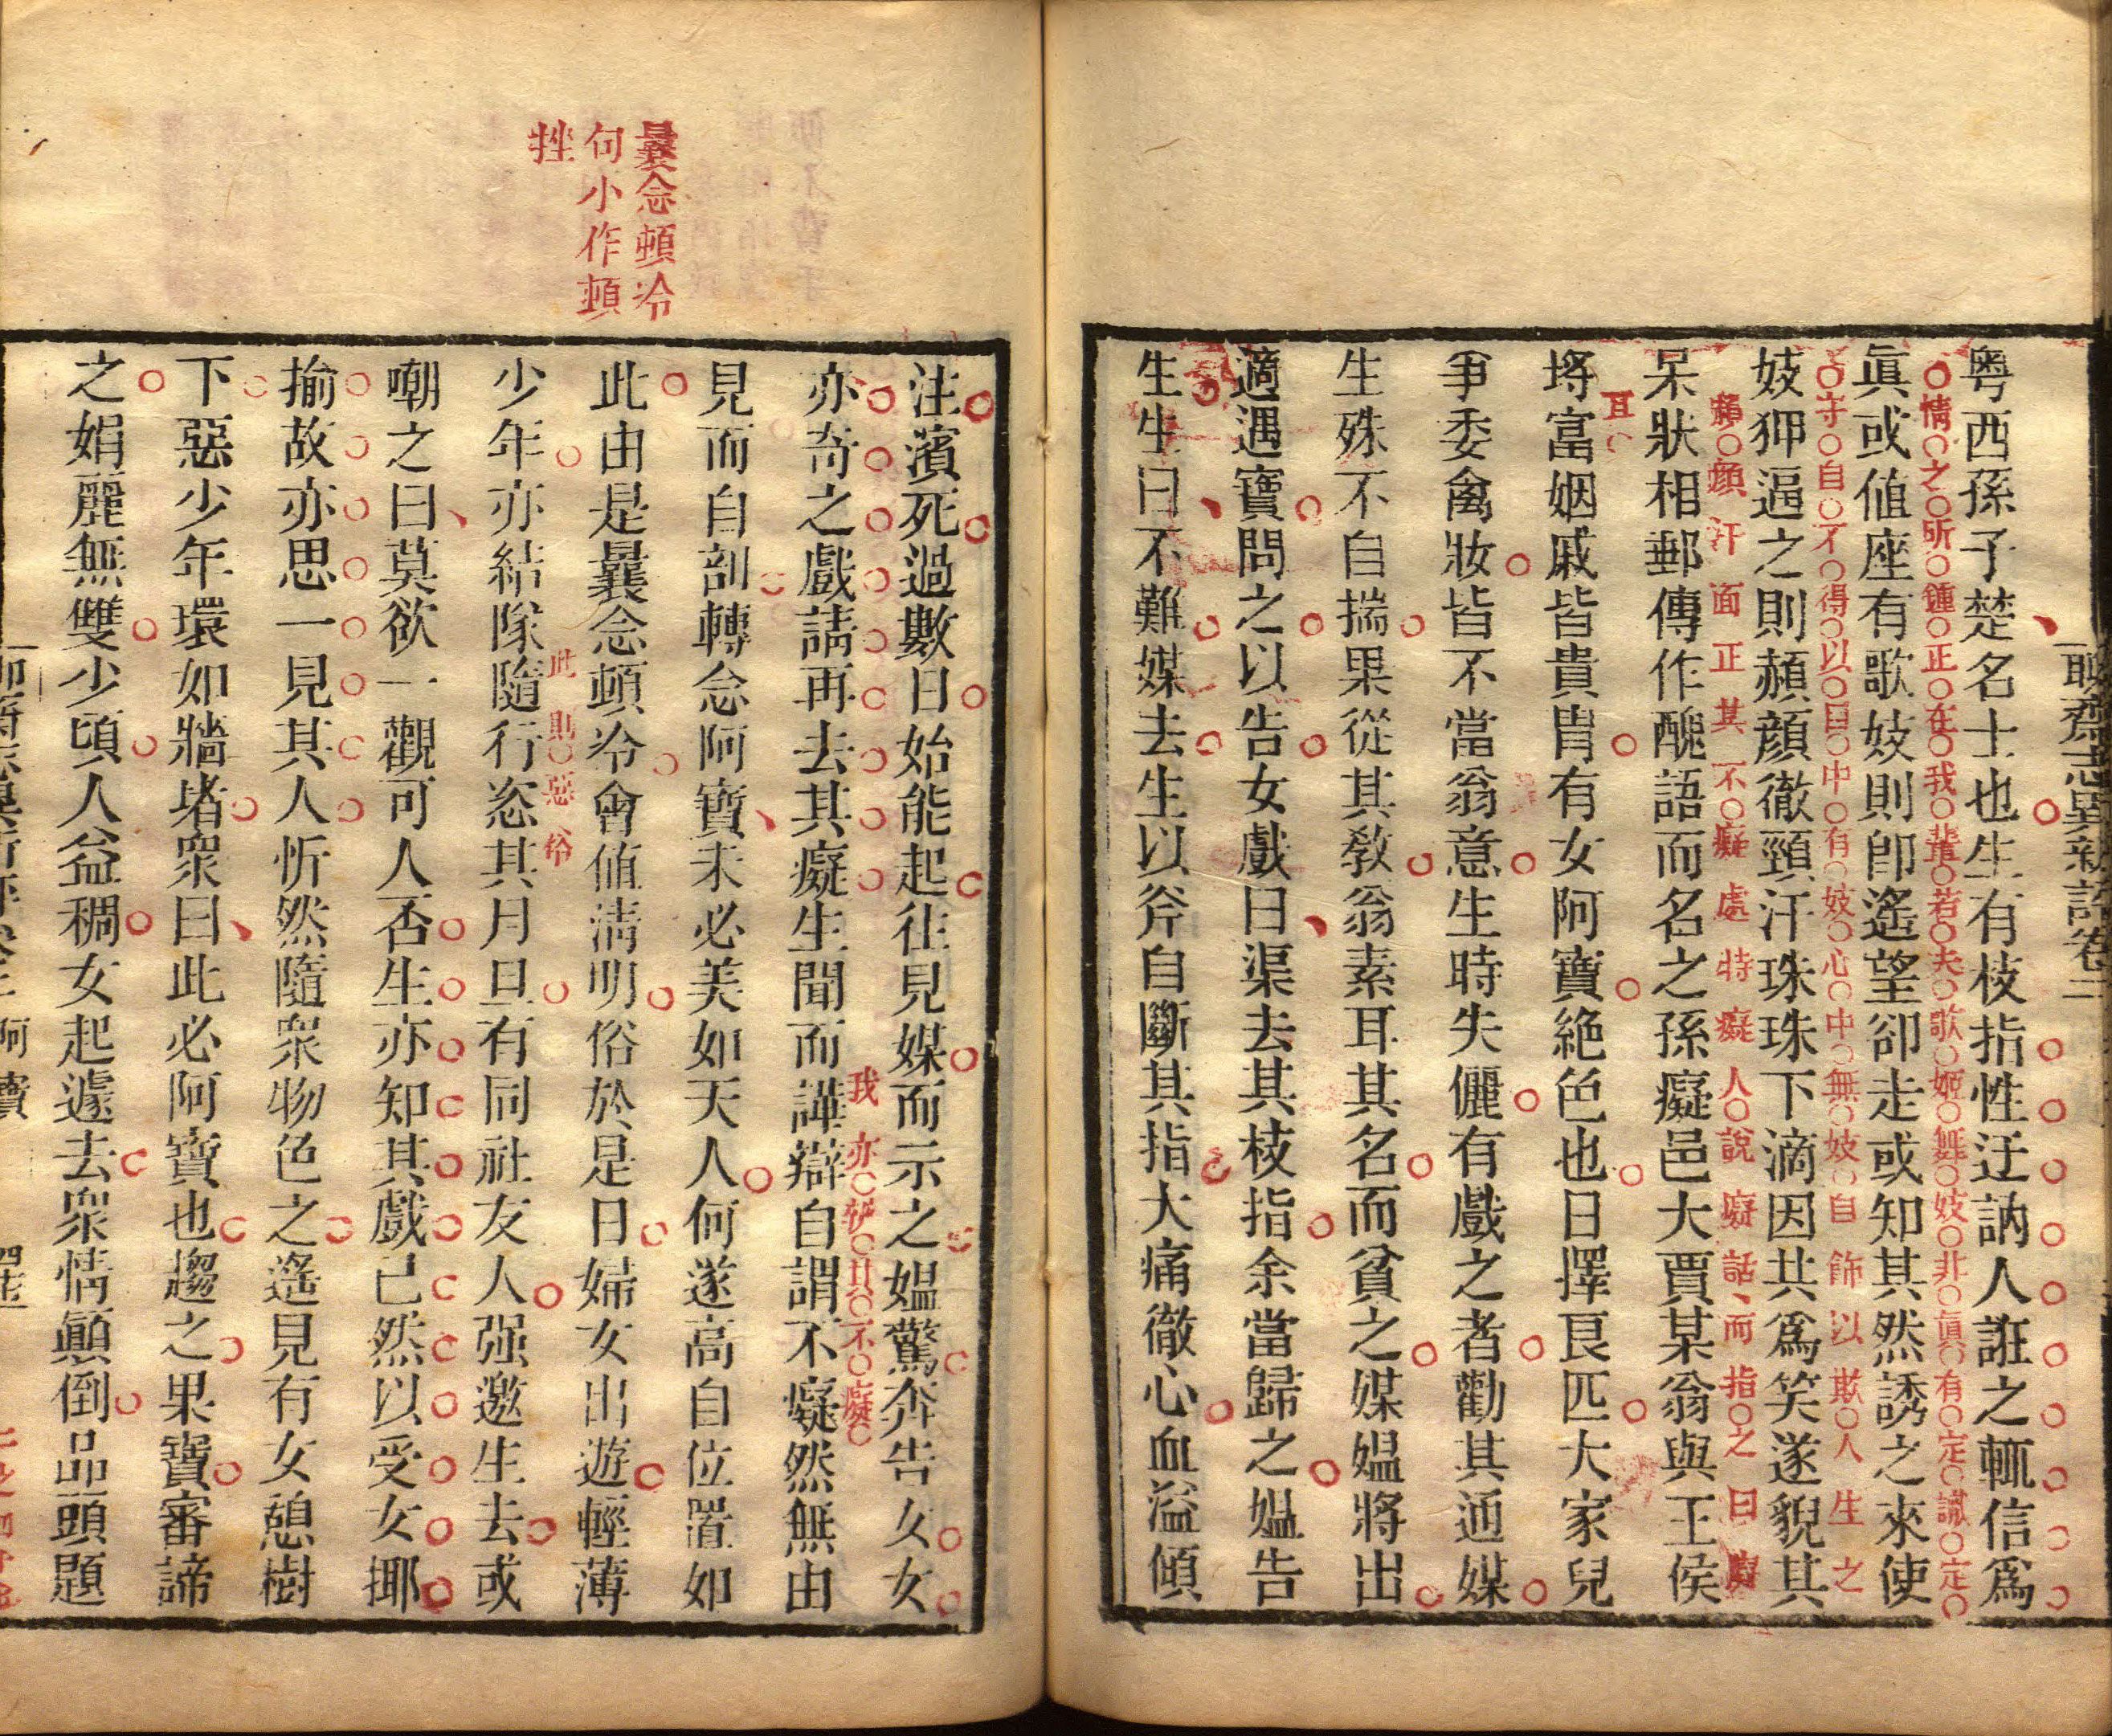 聊齋志異新評卷二
粤西孫子楚名士也生有枝指性迂訥人誑之輒信爲
情之所鍾正在我輩若夫歌姬舞妓非眞有定識定
眞或値座有歌妓則卽遙望卻走或知其然誘之來使
守自不得以目中有妓心中無妓自飾以欺人生之
妓狎逼之則赬顏徹頸汗珠珠下滴因共爲笑遂貌其
赬顏汗面正其不癡處特癡人說癡話而指之曰癡
呆狀相郵傳作醜語而名之孫癡邑大賈某翁與王侯
耳
埒富姻戚皆貴胄有女阿寶絕色也日擇良匹大家兒
爭委禽妝皆不當翁意生時失儷有戲之者勸其通媒
生殊不自揣果從其敎翁素耳其名而貧之媒媼將出
適遇寶問之以告女戲曰渠去其枝指余當歸之媼告
生生曰不難媒去生以斧自斷其指大痛徹心血溢傾
曩念頓冷
句小作頓
挫
注濱死過數日始能起往見媒而示之媼驚奔告女女
亦奇之戲請再去其癡生聞而譁辯自謂不癡然無由
我亦謂其不癡
見而自剖轉念阿寶未必美如天人何遂高自位置如
此由是曩念頓冷會値淸明俗於是日婦女出遊輕薄
此則惡俗
少年亦結隊隨行恣其月旦有同社友人强邀生去或
嘲之曰莫欲一觀可人否生亦知其戲己然以受女揶
揄故亦思一見其人忻然隨衆物色之遙見有女憩樹
下惡少年環如牆堵衆曰此必阿寶也趨之果寶審諦
之娟麗無雙少頃人益稠女起遽去衆情顚倒品頭題
阿寶